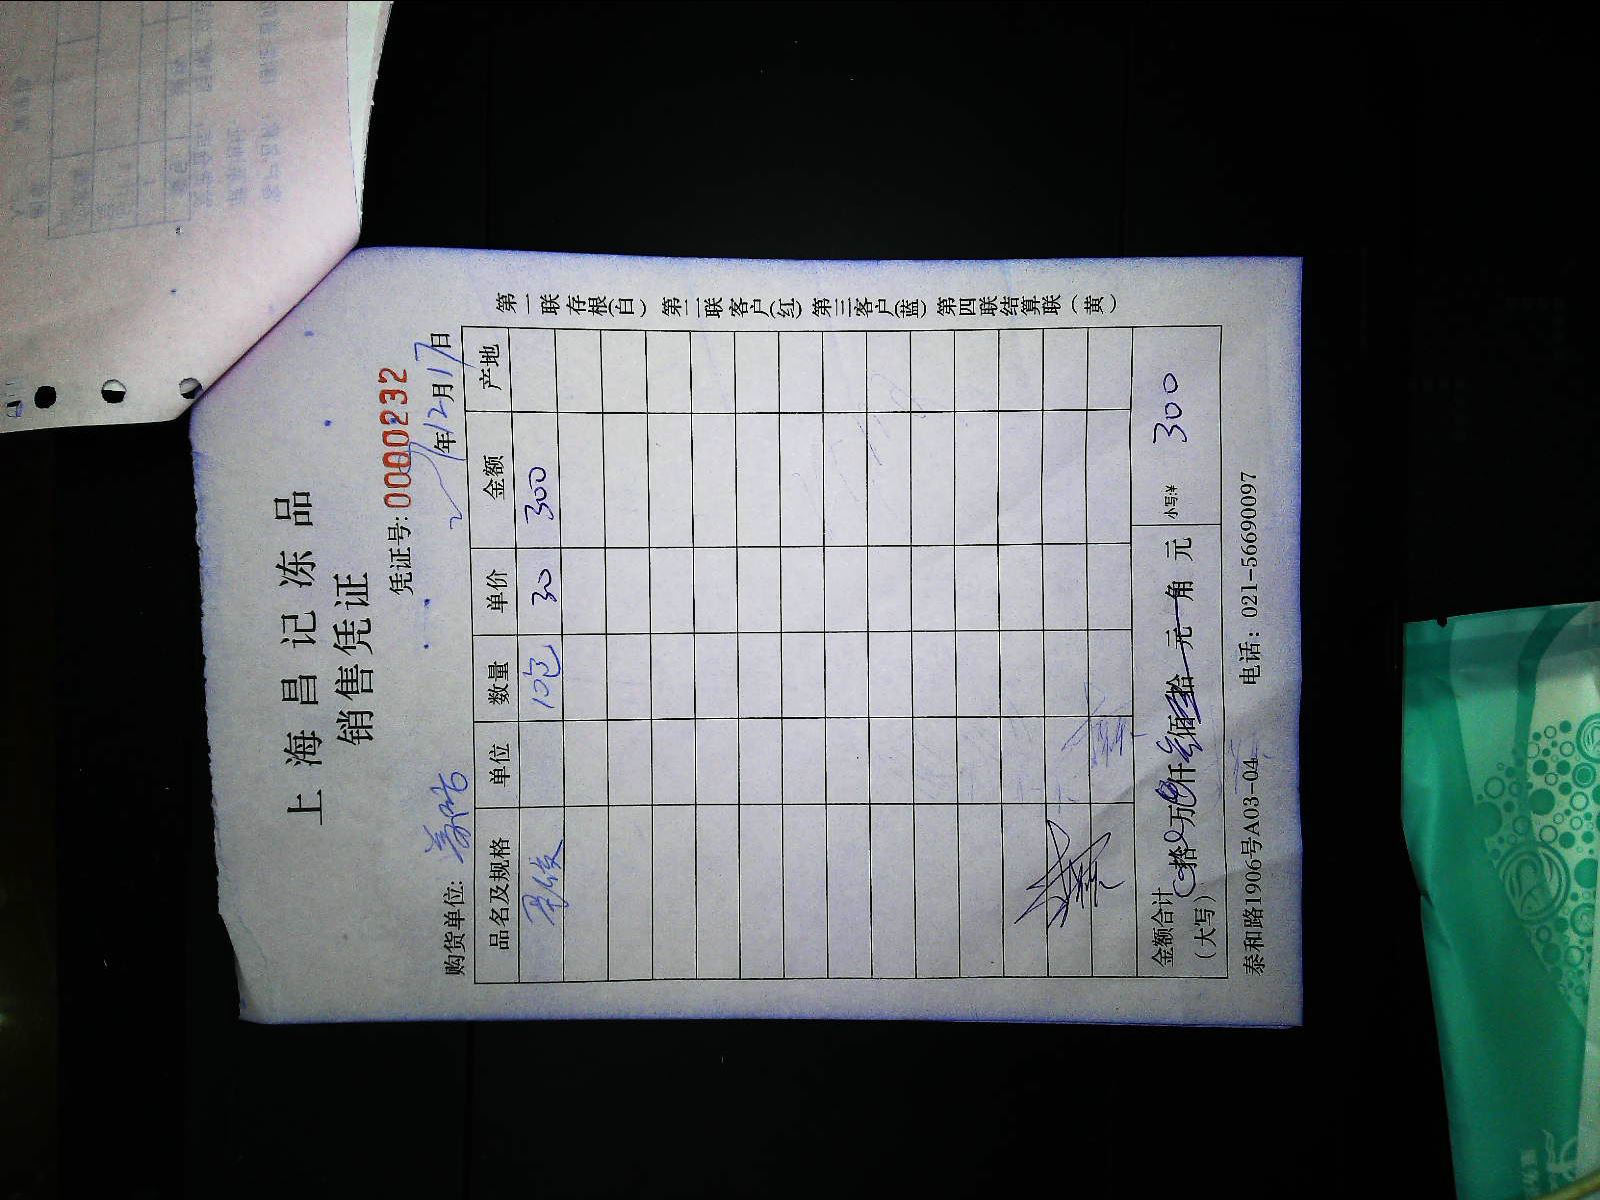 上海昌记冻品
销售凭证
凭证号: 0000232
购货单位: 年12月17日
品名及规格 单位 数量 单价 金额 产地
10包 30 300
金额合计(大写) 拾万仟佰拾元角元 小写:¥ 300
泰和路1906号A03-04 电话: 021-56690097
第一联存根(白) 第二联客户(红) 第三客户(蓝) 第四联结算联(黄)